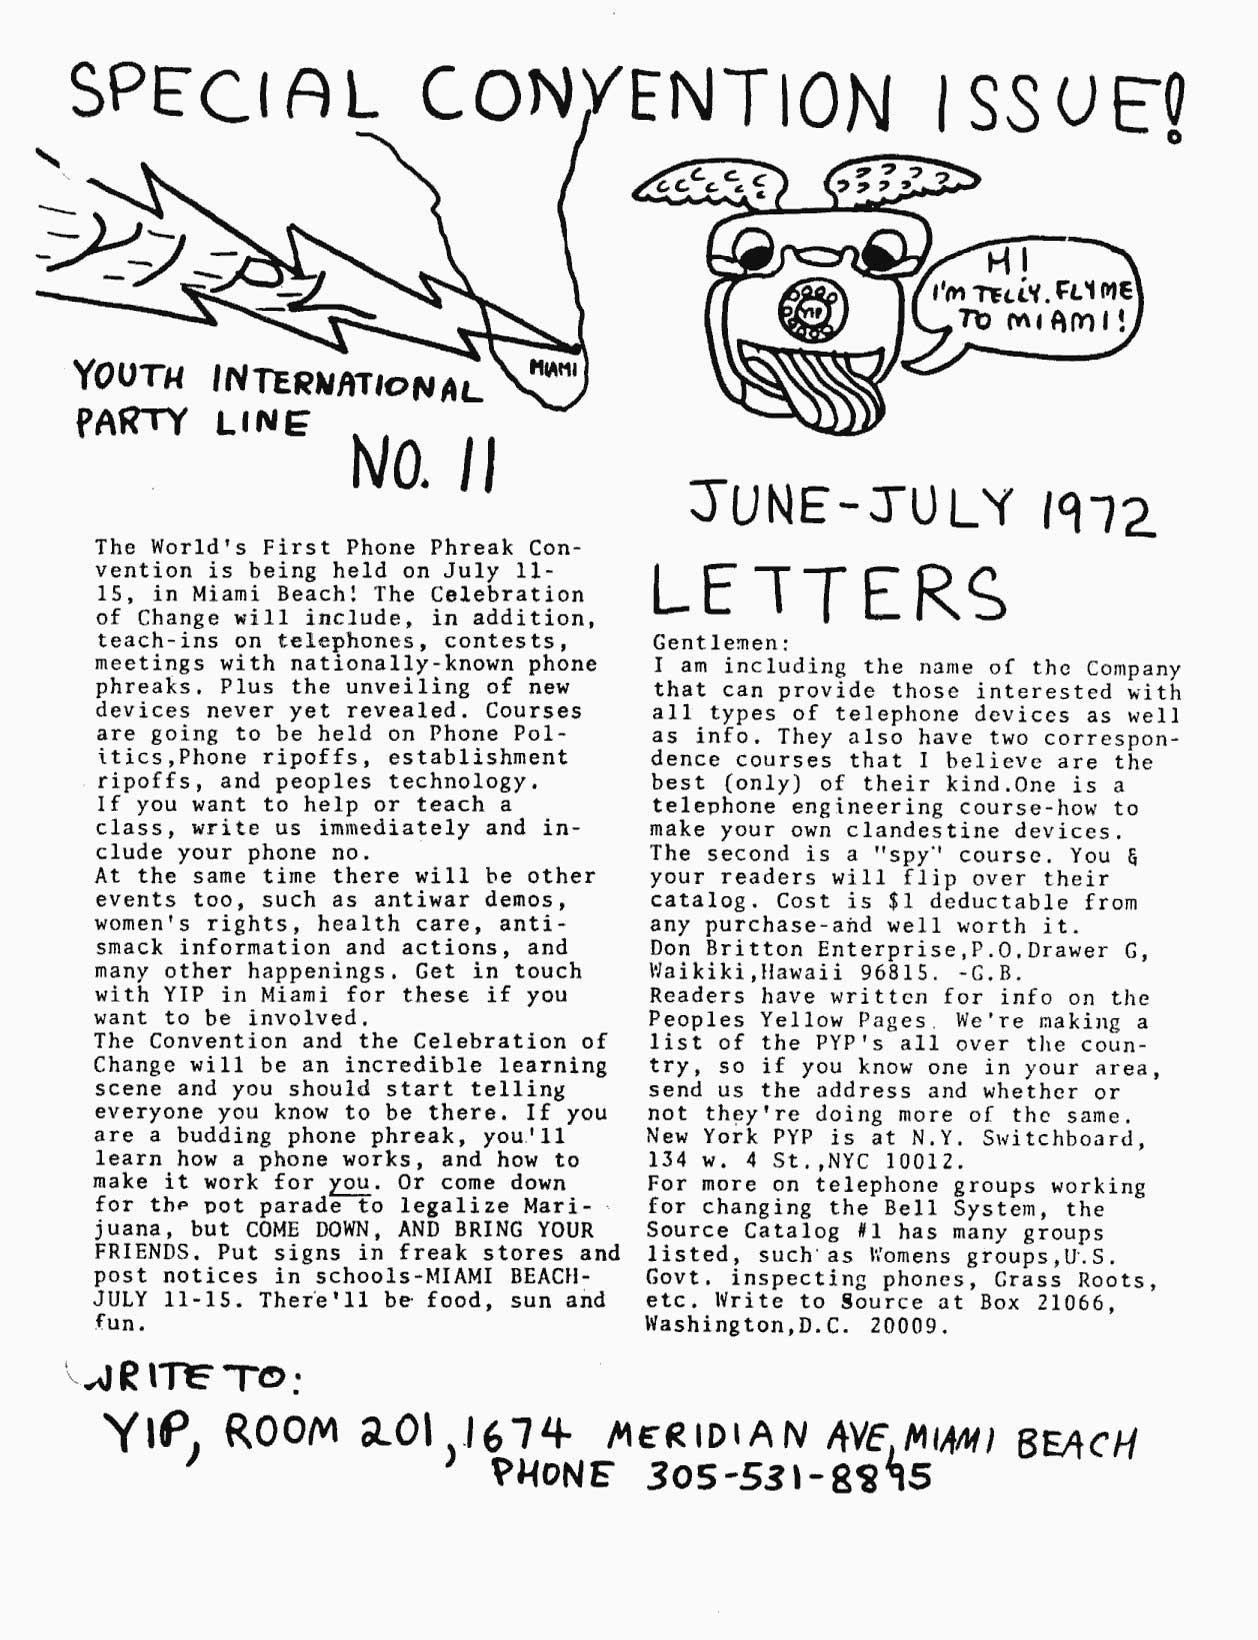 SPECIAL CONVENTION ISSUE!
YIPL
MIAMI
YIP
HI
I'M TELLY. FLY ME
TO MIAMI!
YOUTH INTERNATIONAL
PARTY LINE
NO. 11
JUNE-JULY 1972
The World's First Phone Phreak Con-
vention is being held on July 11-
15, in Miami Beach! The Celebration
of Change will include, in addition,
teach-ins on telephones, contests,
meetings with nationally-known phone
phreaks. Plus the unveiling of new
devices never yet revealed. Courses
are going to be held on Phone Pol-
itics,Phone ripoffs, establishment
ripoffs, and peoples technology.
If you want to help or teach a
class, write us immediately and in-
clude your phone no.
At the same time there will be other
events too, such as antiwar demos,
women's rights, health care, anti-
smack information and actions, and
many other happenings. Get in touch
with YIP in Miami for these if you
want to be involved.
The Convention and the Celebration of
Change will be an incredible learning
scene and you should start telling
everyone you know to be there. If you
are a budding phone phreak, you'll
learn how a phone works, and how to
make it work for you. Or come down
for the pot parade to legalize Mari-
juana, but COME DOWN, AND BRING YOUR
FRIENDS. Put signs in freak stores and
post notices in schools-MIAMI BEACH-
JULY 11-15. There'll be food, sun and
fun.
LETTERS
Gentlemen:
I am including the name of the Company
that can provide those interested with
all types of telephone devices as well
as info. They also have two correspon-
dence courses that I believe are the
best (only) of their kind.One is a
telephone engineering course-how to
make your own clandestine devices.
The second is a "spy" course. You &
your readers will flip over their
catalog. Cost is $1 deductable from
any purchase-and well worth it.
Don Britton Enterprise,P.O.Drawer G,
Waikiki,Hawaii 96815. -G.B.
Readers have written for info on the
Peoples Yellow Pages. We're making a
list of the PYP's all over the coun-
try, so if you know one in your area,
send us the address and whether or
not they're doing more of the same.
New York PYP is at N.Y. Switchboard,
134 w. 4 St.,NYC 10012.
For more on telephone groups working
for changing the Bell System, the
Source Catalog #1 has many groups
listed, such as Womens groups,U.S.
Govt. inspecting phones, Grass Roots,
etc. Write to Source at Box 21066,
Washington,D.C. 20009.
WRITE TO:
YIP, ROOM 201, 1674 MERIDIAN AVE, MIAMI BEACH
PHONE 305-531-8895